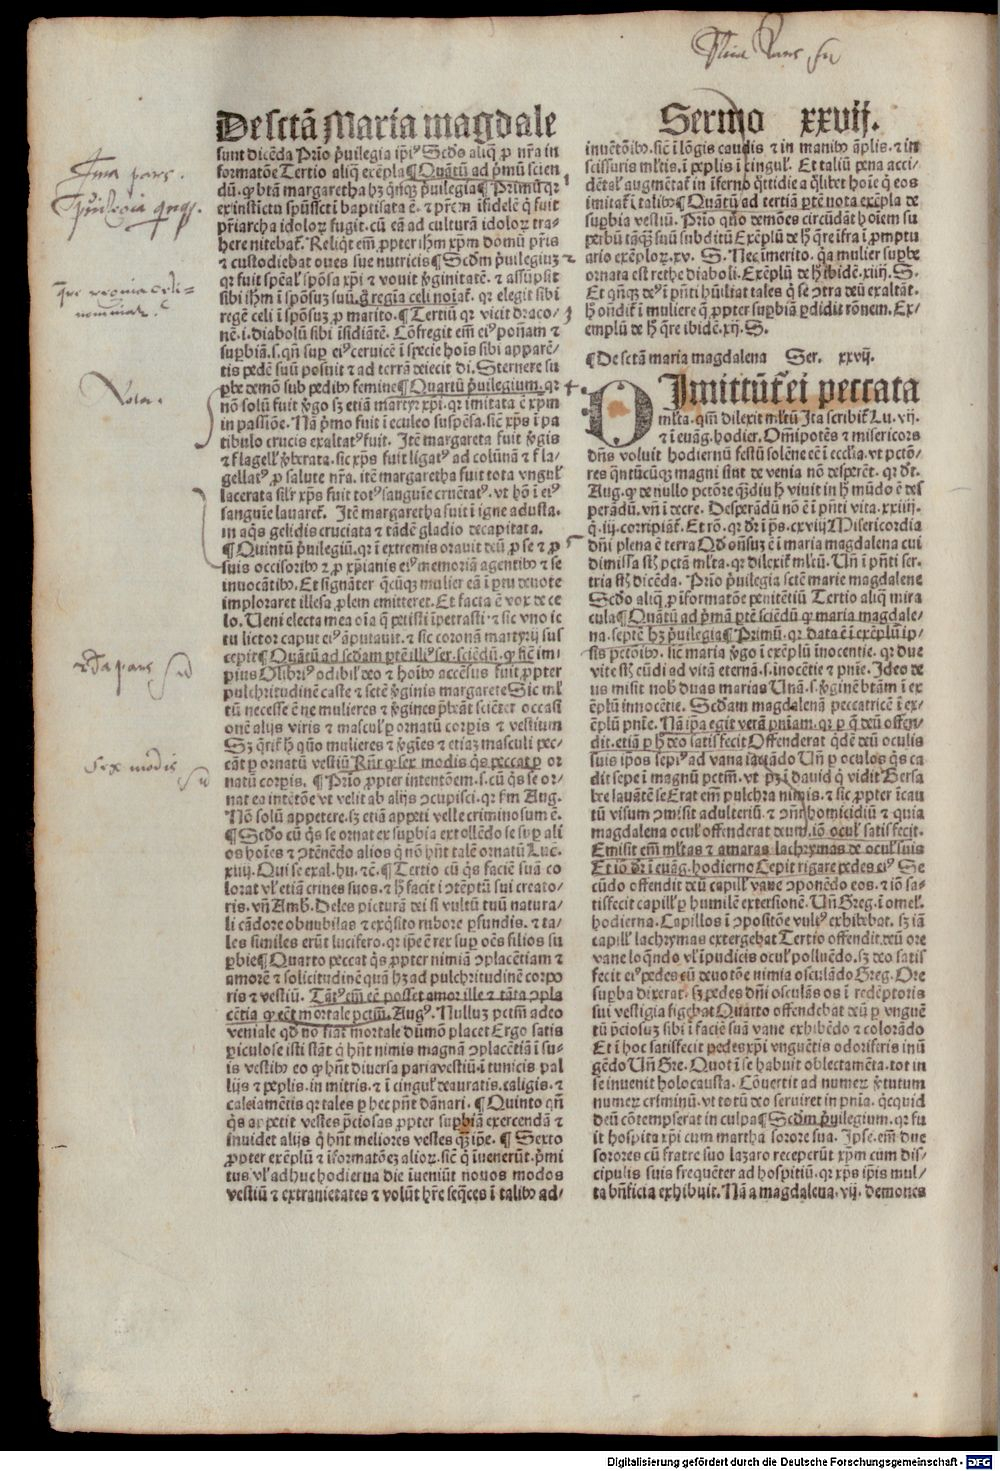 De sctā Maria magdale
sunt dicēda Prīo p̄uilegia ip̄iꝰ Scd̓o aliq̄ ꝓ nr̄a in
formatōe Tertio aliq̄ exēpla ¶ Quātū ad p̄mū scien
dū. ꝙ btā margaretha hꝫ q̄nqꝫ p̄uilegia ¶ Primū qꝛ
ex instictu spūsscti baptisata ē. ⁊ pr̄em īfidelē q̇ fuit
pr̄iarcha idoloꝝ fugit. cū eā ad culturā idoloꝝ tra-
here nitebat̄. Reliq̇t em̄ ꝓpter ih̄m xp̄m domū pr̄is
⁊ custodiebat oues sue nutricis ¶ Scd̓m p̄uilegiuꝫ
qꝛ fuit spēal̓ spōsa xp̄i ⁊ vouit v̓ginitatē. ⁊ assūpsit
sibi ih̄m ī spōsuꝫ suū. q̄ regīa celi noīat̄. qꝛ elegit sibi
regē celi ī spōsuꝫ ꝓ marito. ¶ Tertiū qꝛ vicit draco-
nē .i. diabolū sibi īsidiātē. Cōfregit em̄ eiꝰ poñam ⁊
suꝑbiā .s. qn̄ suꝑ eiꝰ ceruicē ī specie hoīs sibi apparē-
tis pedē suū posuit ⁊ ad terrā deiecit di. Sternere su
ꝑbe demō sub pedibꝰ femine ¶ Quartū p̄uilegium. qꝛ
nō solū fuit v̓go sꝫ etiā martyr xp̄i. qꝛ imitata ē xp̄m
in passiōe. Nā p̄mo fuit ī eculeo suspēsa. sic̄ xp̄s ī pa
tibulo crucis exaltatꝰ fuit. Itē margareta fuit v̓gis
⁊ flagell̓ v̓berata. sic xp̄s fuit ligatꝰ ad colūnā ⁊ fla-
gellatꝰ ꝓ salute nr̄a. itē margaretha fuit tota vngul̓
lacerata silr̄ xp̄s fuit totꝰ sanguīe cruētatꝰ. vt hō ī eiꝰ
sanguīe lauaret̄. Itē margaretha fuit ī igne adusta.
in aq̇s gelidis cruciata ⁊ tādē gladio decapitata.
¶ Quintū p̄uilegiū. qꝛ ī extremis orauit deū ꝓ se ⁊ ꝓ
suis occisoribꝰ ⁊ ꝓ xp̄ianis eiꝰ memoriā agentibꝰ ⁊ se
inuocātibꝰ. Et signāter q̄cūqꝫ mulier eā ī ptu deuote
imploraret illesa ꝓlem emitteret. Et facta ē vox de ce
lo. Ueni electa mea oīa q̄ petisti īpetrasti. ⁊ sic vno ic
tu lictor caput eiꝰ āputauit. ⁊ sic coronā martyrij sus
cepit ¶ Quātū ad scd̓am ꝑtē illiꝰ ser. sciēdū. ꝙ sic̄ im
pius Olibriꝰ odibil̓ deo ⁊ hoībꝰ accēsus fuit ꝓpter
pulchritudinē caste ⁊ sctē v̓ginis margarete Sic ml̓
tū necesse ē ne mulieres ⁊ v̓gines p̄beāt sciēter occasi
onē alijs viris ⁊ mascul̓ ꝑ ornatū corꝑis ⁊ vestium
Sꝫ q̄rit̄ h̓ quō mulieres ⁊ v̓gīes ⁊ etiaꝫ masculi pec-
cāt ꝑ ornatū vestiū Rn̄r ꝙ sex modis q̇s peccat ꝑ or
natū corꝑis. ¶ Prīo ꝓpter intentōem .s. cū q̇s se or-
nat ea intētōe vt velit ab alijs ↄcupisci. qꝛ fm̄ Aug.
Nō solū appetere. sꝫ etiā appeti velle criminosum ē.
¶ Scd̓o cū q̇s se ornat ex suꝑbia extollēdo se suꝑ ali
os hoīes ⁊ ↄtēnēdo alios q̇ nō hn̄t talē ornatū Luc.
xiiij. Qui se exal. hu. ⁊c̄. ¶ Tertio cū q̇s faciē suā co
lorat vl̓ etiā crines suos. ⁊ h̓ facit ī ↄtēptū sui creato-
ris. vn̄ Amb. Deles picturā dei si vultū tuū natura-
li cādore obnubilas ⁊ exq̇sito rubore ꝑfundis. ⁊ ta-
les similes erūt lucifero. qꝛ ip̄e ē rex suꝑ oēs filios su
ꝑbie ¶ Quarto peccat q̇s ꝓpter nimiā ↄplacētiam ⁊
amorē ⁊ solicitudinē quā hꝫ ad pulchritudinē corpo
ris ⁊ vestiū. Tātꝰ em̄ eē posset amor ille ⁊ tāta ↄpla
cētia ꝙ eēt mortale pctm̄. Augꝰ. Nulluꝫ pctm̄ adeo
veniale qd̓ nō fiat mortale dūmō placet Ergo satis
ꝑiculose isti stāt q̇ hn̄t nimis magnā ↄplacētiā ī su-
is vestibꝰ eo ꝙ hn̄t diuersa paria vestiū. ī tunicis pal
lijs ⁊ pepl̓is. in mitris. ⁊ ī cingul̓ deauratis. caligis. ⁊
calciamētis qꝛ tales ꝑ hec pn̄t dānari. ¶ Quinto qn̄
q̇s appetit vestes p̄ciosas ꝓpter suꝑbiā exercendā ⁊
inuidet alijs q̇ hn̄t meliores vestes q̄ꝫ ip̄e. ¶ Sexto
ꝓpter exēplū ⁊ īformatōeꝫ alioꝝ. sic̄ q̇ īuenerūt. p̄mi
tus vl̓ adhuc hodierna die īueniūt nouos modos
vestiū ⁊ extranietates ⁊ volūt hr̄e seq̄ces ī talibꝰ ad-
Sermo xxvij.
inuētōibꝰ. sic̄ ī lōgis caudis ⁊ in manibꝰ āplis. ⁊ in
scissuris ml̓tis. ī pepl̓is ī cingul̓. Et taliū pena acci-
dētal̓ augmētat̄ in īferno q̇ttidie a q̇libet hoīe q̇ eos
imitat̄ ī talibꝰ ¶ Quātū ad tertiā ꝑtē nota exēpla de
suꝑbia vestiū. Prīo quō demōes circūdāt hoīem su
ꝑerbū tāq̄ꝫ suū subditū Exēplū de h̓ q̄re īfra ī ꝓmptu
ario exēploꝝ. xv. S. Nec īmerito. q̇a mulier suꝑbe
ornata est rethe diaboli. Exēplū de h̓ ibidē. xiij. S.
Et qn̄qꝫ deꝰ ī pn̄ti hūiliat tales q̇ se ↄtra deū exaltāt.
h̓ ondit̄ ī muliere q̄ ꝓpter suꝑbiā ꝑdidit rōnem. Ex-
emplū de h̓ q̄re ibidē. xij. S.
¶ De sctā maria magdalena Ser. xxvij.
DImittūt̄ ei peccata
ml̓ta. qm̄ dilexit ml̓tū Ita scribit̄ Lu. vij.
⁊ ī euāg. hodier. Om̄ipotēs ⁊ misericors
dn̄s voluit hodiernū festū solēne eē ī ecclīa. vt pctō-
res qn̄tūcūqꝫ magni sint de venia nō desperēt. qꝛ dt̄.
Aug. ꝙ de nullo pctōre q̄ꝫdiu h̓ viuit in h̓ mūdo ē des
ꝑerādū. vn̄ ī decre. Desperādū nō ē ī pn̄ti vita. xxiij.
q. iij. corripiāt̄. Et rō. qꝛ dr̄ ī ps. cxviij Misericordia
dn̄i plena ē terra Qd̓ on̄suꝫ ē ī maria magdalena cui
dimissa sūt pctā ml̓ta. qꝛ dilexit ml̓tū. Un̄ ī pn̄ti ser.
tria sūt dicēda. Prīo p̄uilegia sctē marie magdalene
Scd̓o aliq̄ ꝓ īformatōe penitētiū Tertio aliq̄ mira
cula ¶ Quātū ad p̄mā ꝑtē sciēdū ꝙ maria magdale-
na. septē hꝫ p̄uilegia ¶ Primū. qꝛ data ē ī exēplū ip-
sis pctōibꝰ. sic̄ maria v̓go ī exēplū īnocentie. qꝛ due
vite sūt eūdi ad vitā eternā. s. īnocētie ⁊ pn̄ie. Ideo de
us misit nob̓ duas marias Unā .s. v̓ginē btām ī ex
ēplū innocētie. Scd̓am magdalenā peccatricē ī ex-
ēplū pn̄ie. Nā ip̄a egit verā pn̄iam. qꝛ ꝑ q̄ deū offen-
dit. etiā ꝑ h̓ deo satisfecit Offenderat q̇dē deū oculis
suis ip̄os sepiꝰ ad vana iactādo Un̄ ꝑ oculos q̇s ca
dit sepe ī magnū pctm̄. vt pꝫ ī dauid q̇ vidit Bersa
bee lauātē se Erat em̄ pulchra nimis. ⁊ sic ꝓpter īcau
tū visum ↄmisit adulteriū. ⁊ ↄn̄r homicidiū ⁊ quia
magdalena ocul̓ offenderat deum. iō ocul̓ satisfecit.
Emisit em̄ ml̓tas ⁊ amaras lachrymas de ocul̓ suis
Et iō dr̄ ī euāg. hodierno Cepit rigare pedes eiꝰ Se
cūdo offendit deū capill̓ vane ↄponēdo eos. ⁊ iō sa-
tisfecit capill̓ ꝑ humilē extersionē. Un̄ Greg. ī omel̓.
hodierna. Capillos ī ↄpositōe vultꝰ exhibebat. sꝫ iā
capill̓ lachrymas extergebat Tertio offendit deū ore
vane loq̄ndo vl̓ ipudicis ocul̓ polluēdo. sꝫ deo satis
fecit eiꝰ pedes cū deuotōe nimia osculādo Greg. Ore
suꝑba dixerat. sꝫ pedes dn̄i osculās os ī redēptoris
sui vestigia figebat Quarto offendebat deū ꝑ vnguē
tū p̄ciosuꝫ sibi ī faciē suā vane exhibēdo ⁊ colorādo
Et ī hoc satisfecit pedes xp̄i vnguētis odoriferis inū
gēdo Un̄ Gre. Quot ī se habuit oblectamēta. tot in
se inuenit holocausta. Cōuertit ad numeꝝ v̓tutum
numeꝝ criminū. vt totū deo seruiret in pn̄ia. q̇cquid
deū cōtempserat in culpa ¶ Scd̓m p̄uilegium. qꝛ fu
it hospita xp̄i cum martha sorore sua. Ipse. em̄ due
sorores cū fratre suo lazaro receperūt xp̄m cum dis-
cipulis suis frequēter ad hospitiū. qꝛ xp̄s ip̄is mul-
ta bn̄ficia exhibuit. Nā a magdalena. vij. demones
p̄uilegia qnqꝫ.
Nota.
2da pars
Sex modis
Digitalisierung gefördert durch die Deutsche Forschungsgemeinschaft - DFG